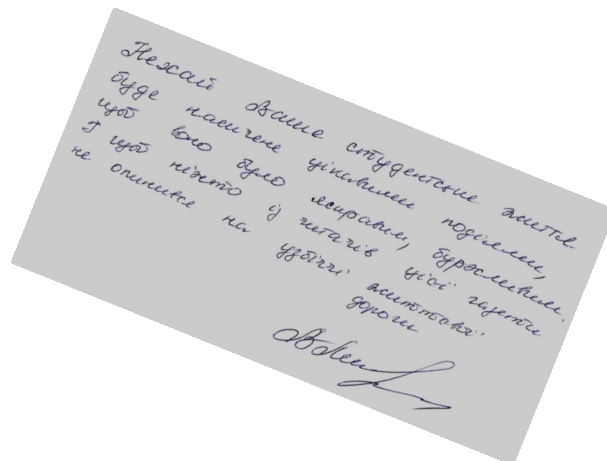 Нехай Ваше студентське життя
буде насичене цікавими подіями,
щоб воно було яскравим, бурхливим.
І щоб ніхто із читачів цієї газети
не опинився на узбіччі життєвої
дороги